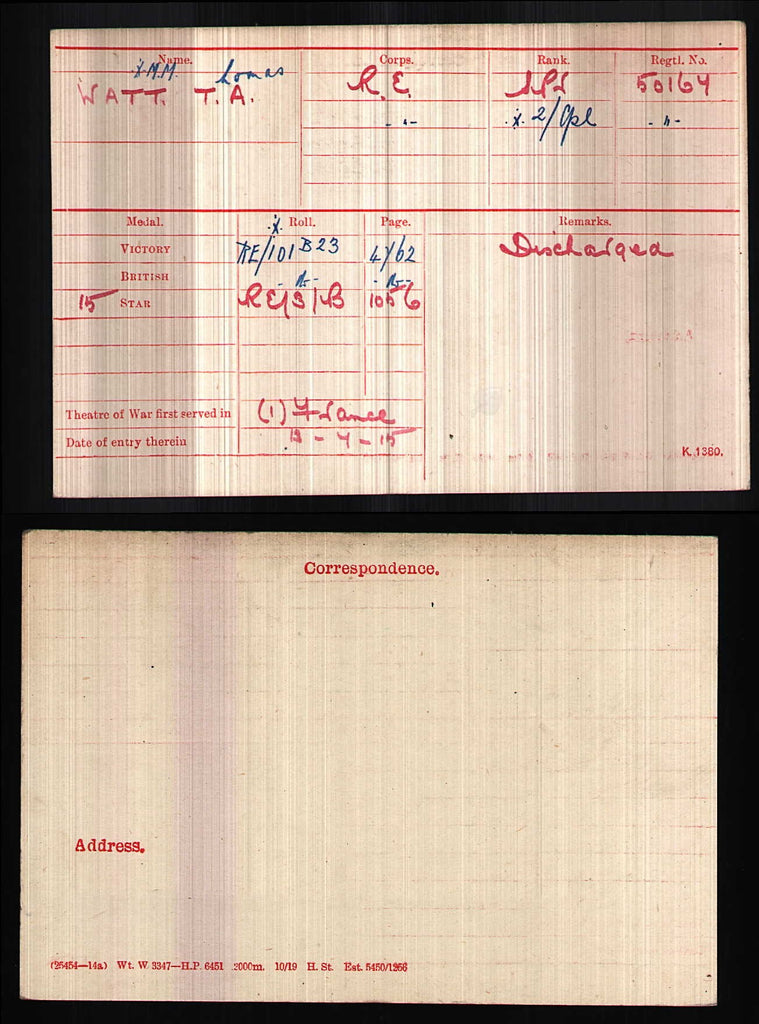 Name. Corps. Rank. Regtl. No.
X M.M. homas
WATT. T. A. R.E. SPR 50164
- " - X 2/Cpl - " -
Medal. X Roll. Page. Remarks.
VICTORY RE/101 B23 4762 Discharged
BRITISH - Do - - Do -
15 STAR RE/3/B 1056
Theatre of War first served in (1) France
Date of entry therein - 4 - 15
K. 1380.
Correspondence.
Address.
(25454—14a) Wt. W. 3347—H.P. 6451 2000m. 10/19 H. St. Est. 5450/1256